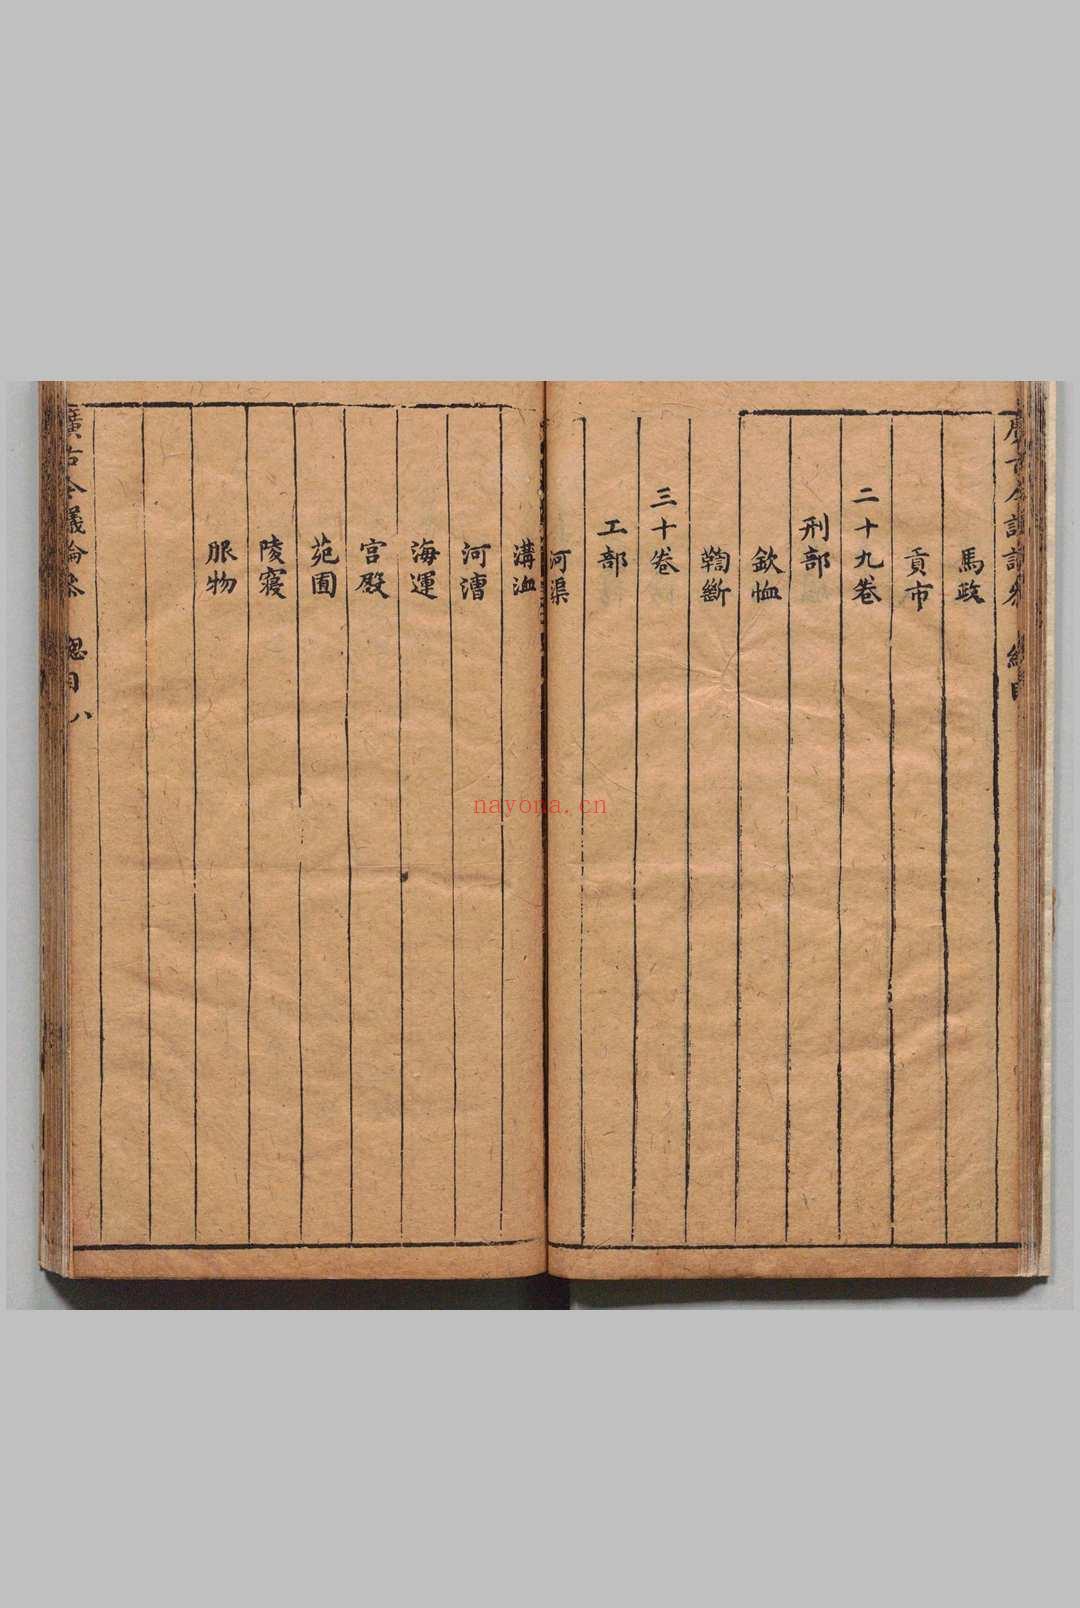 馬政
貢市
二十九卷
刑部
欽恤
鞫斷
三十卷
工部
河渠
溝洫
河漕
海運
宮殿
苑囿
陵寢
服物
廣古今議論叅 總目 八
nayona.cn